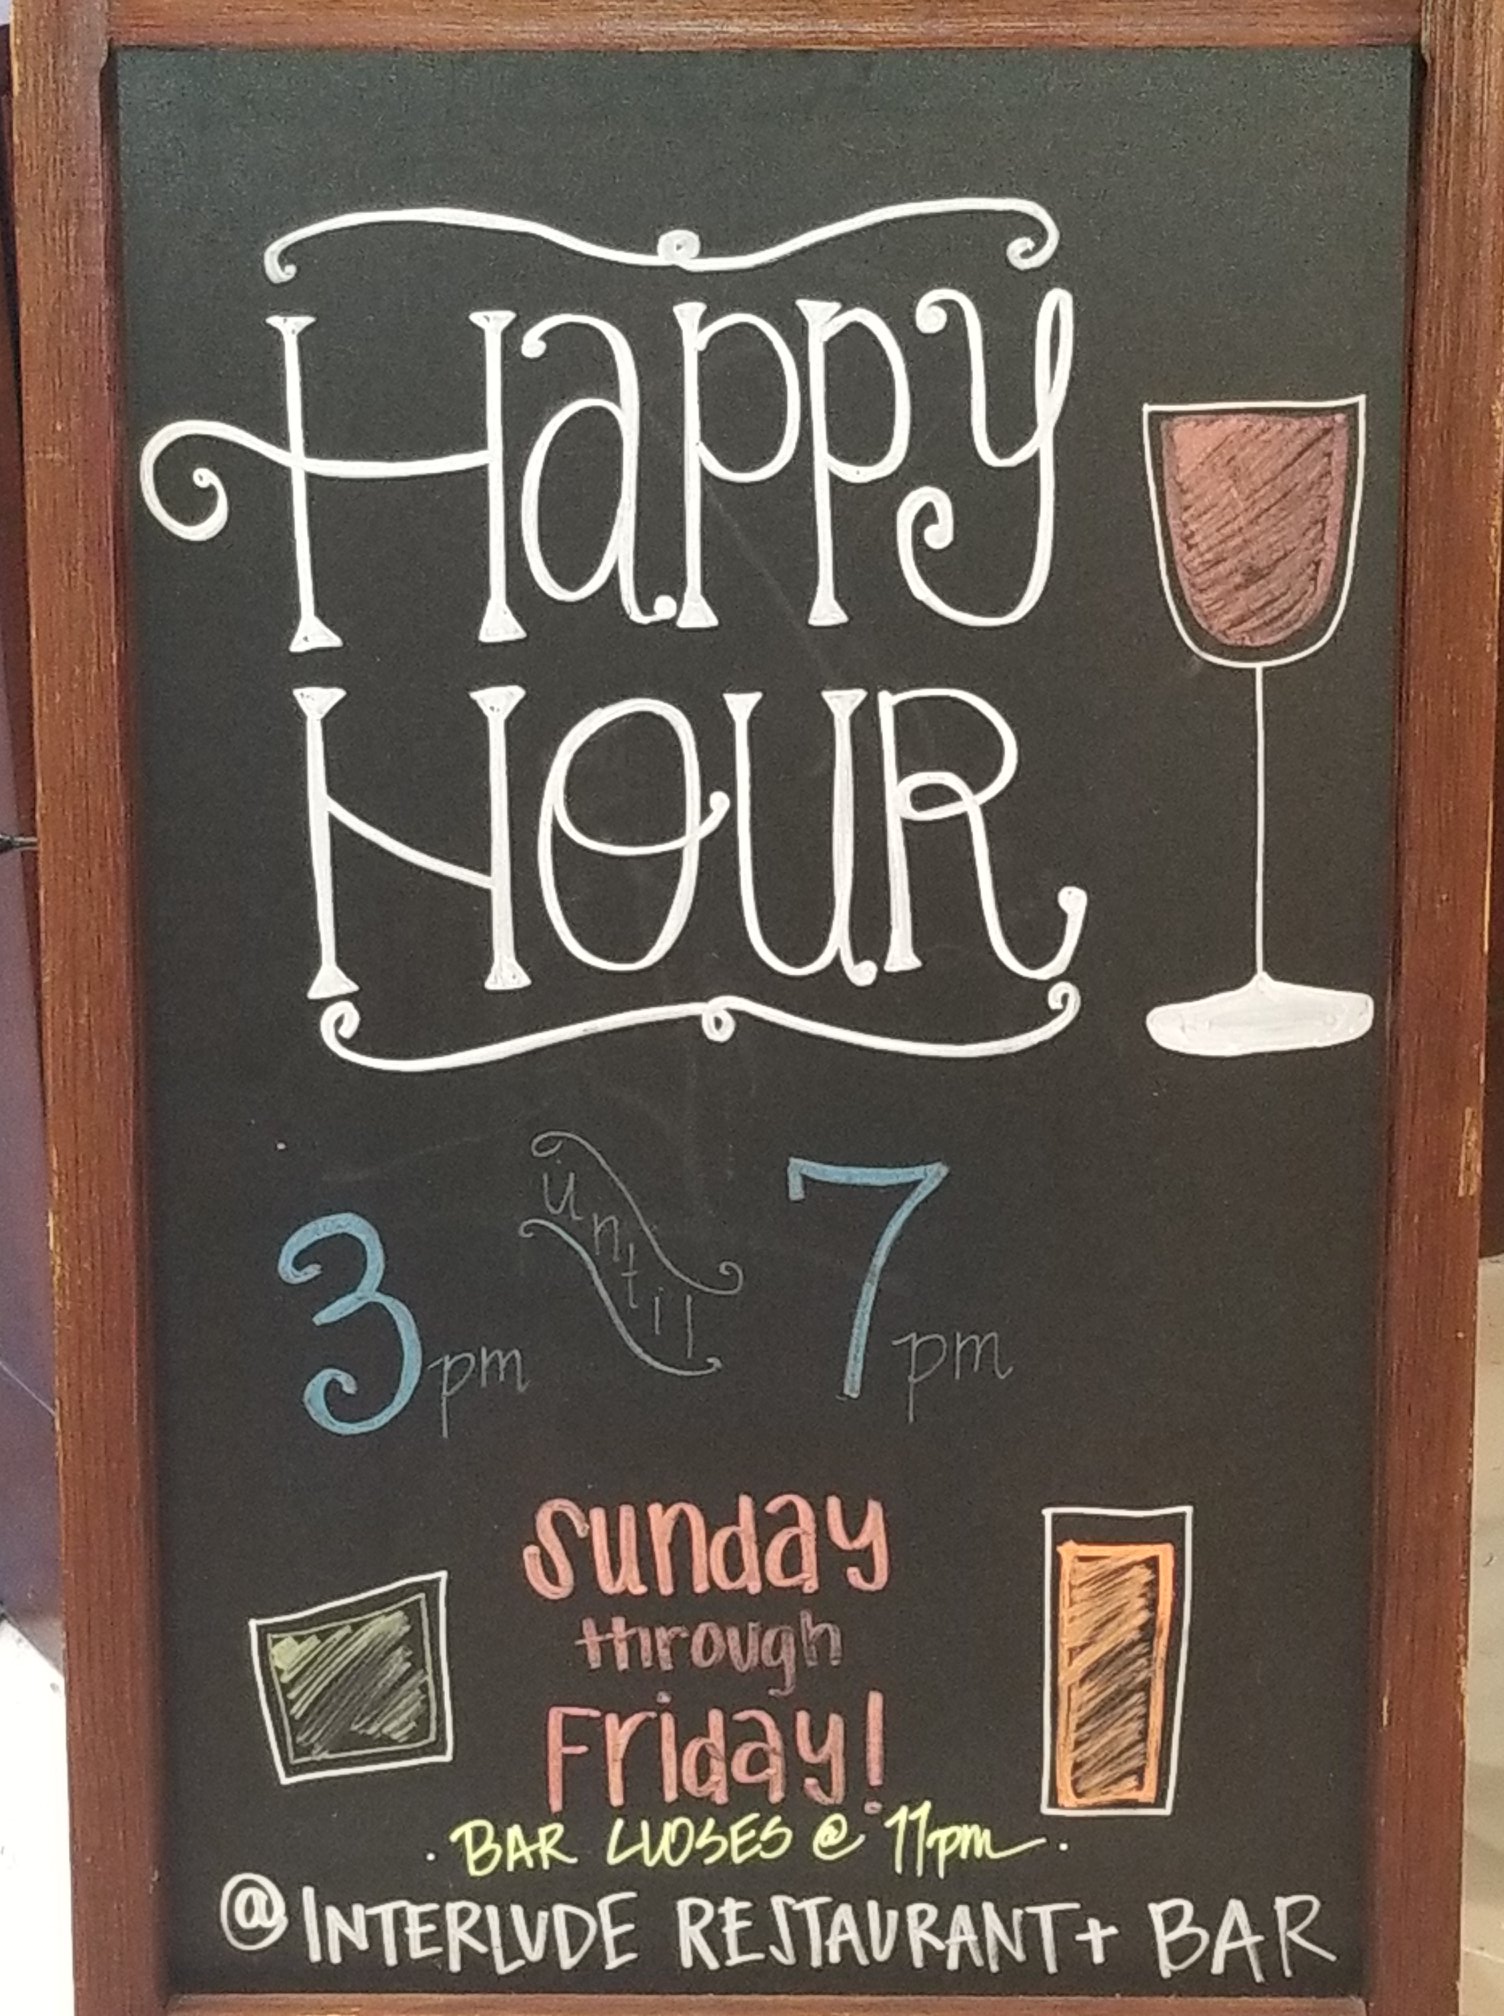 Happy
Hour
3pm until 7pm
Sunday
through
Friday!
· BAR CLOSES @ 11pm ·
@ INTERLUDE RESTAURANT + BAR